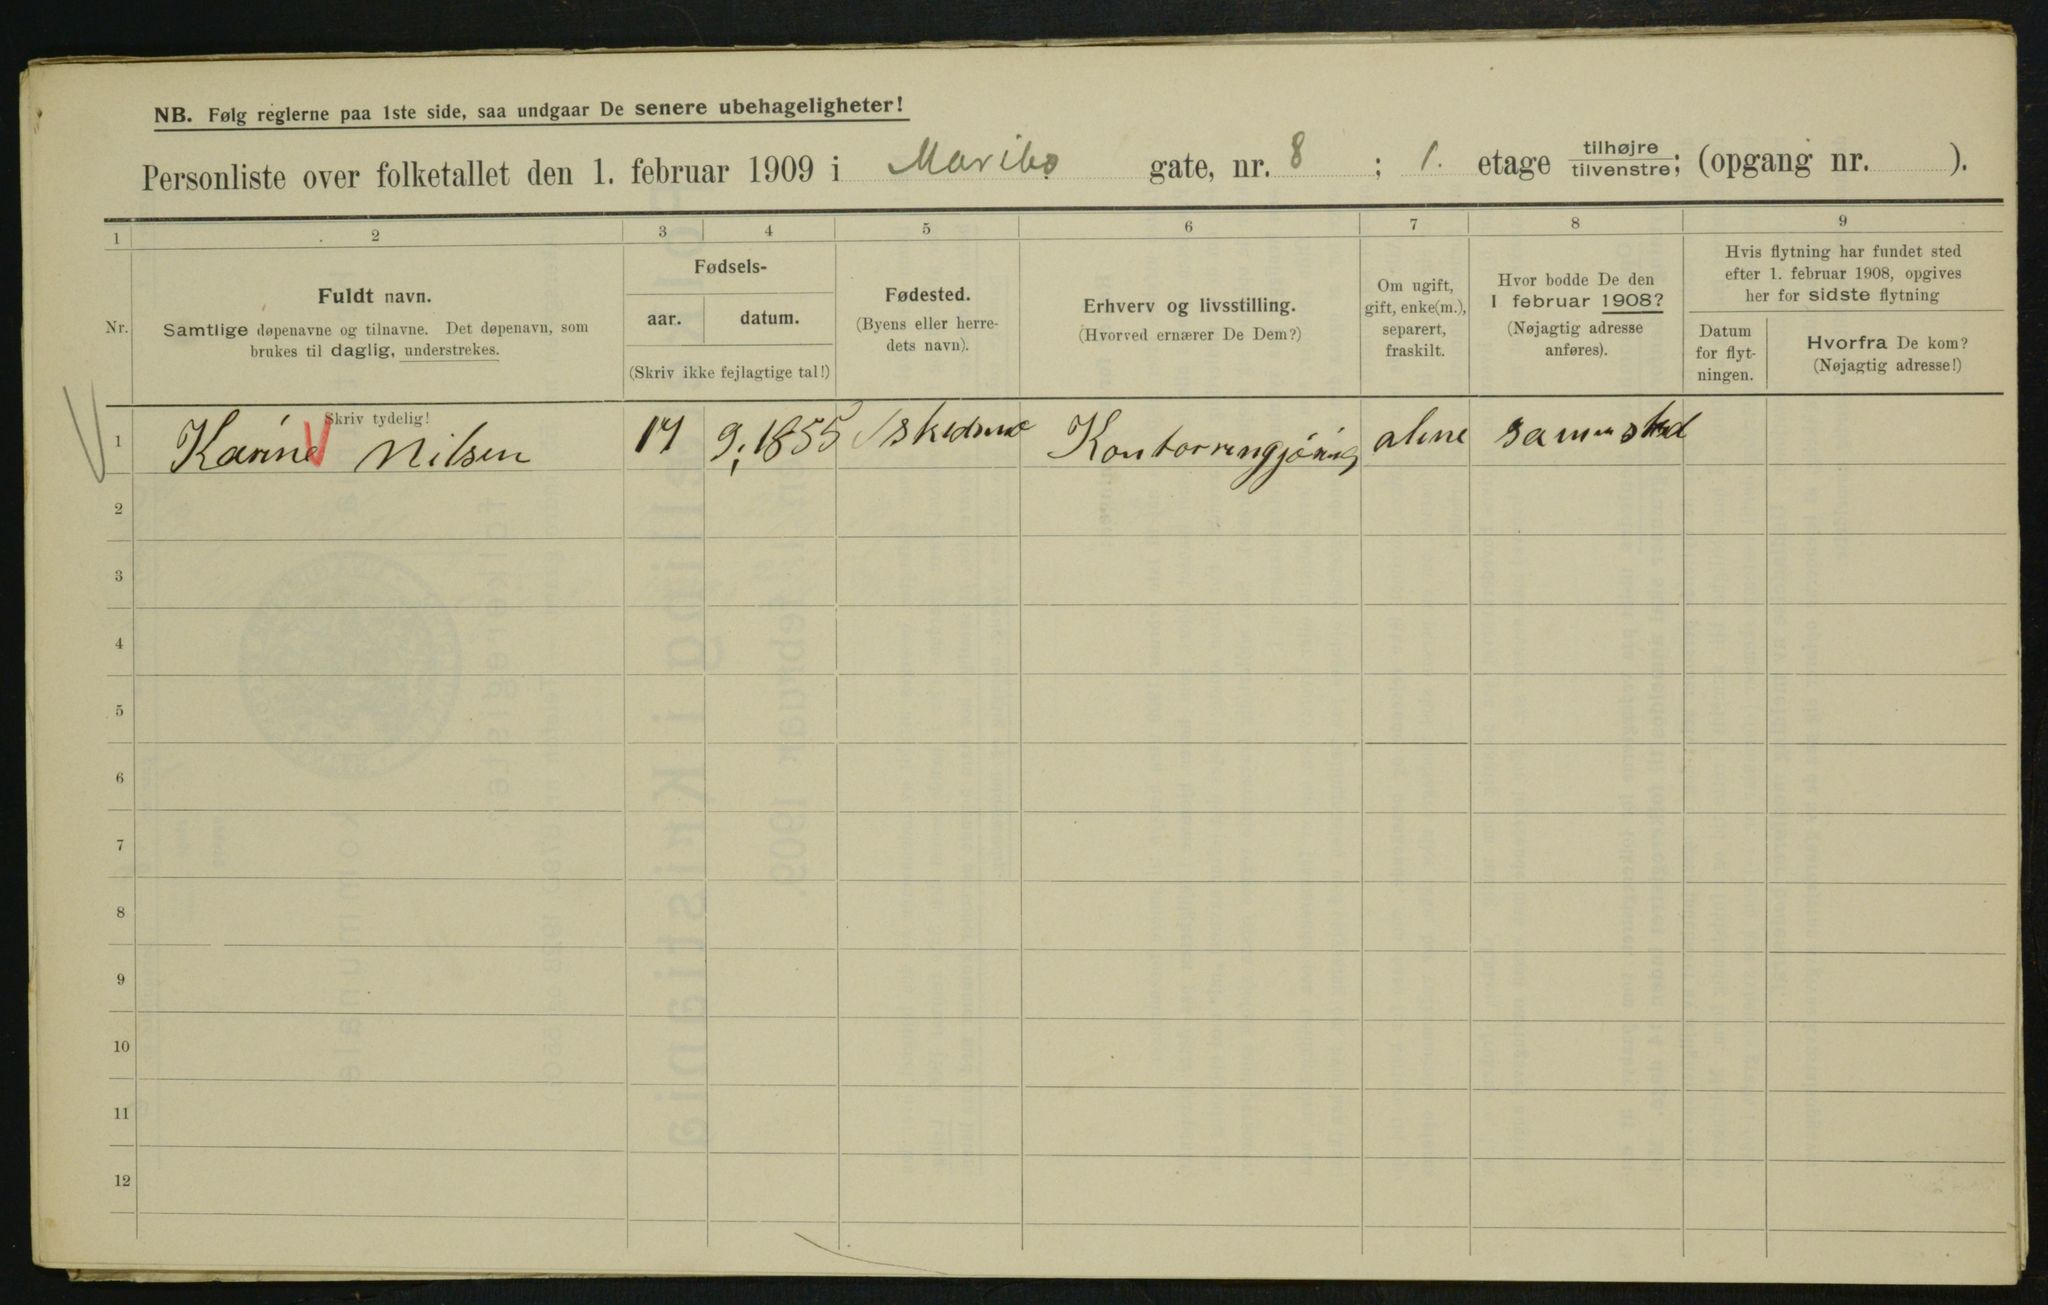 NB. Følg reglerne paa 1ste side, saa undgaar De senere ubehageligheter!
Personliste over folketallet den 1. februar 1909 i Maribo gate, nr. 8 ; 1. etage tilhøjre tilvenstre; (opgang nr. ).
1 2 3 4 5 6 7 8 9
Nr.
Fuldt navn.
Samtlige døpenavne og tilnavne. Det døpenavn, som
brukes til daglig, understrekes.
Fødsels-
aar. datum.
(Skriv ikke fejlagtige tal!)
Fødested.
(Byens eller herre-
dets navn).
Erhverv og livsstilling.
(Hvorved ernærer De Dem?)
Om ugift,
gift, enke(m.),
separert,
fraskilt.
Hvor bodde De den
1 februar 1908?
(Nøjagtig adresse
anføres).
Hvis flytning har fundet sted
efter 1. februar 1908, opgives
her for sidste flytning
Datum
for flyt-
ningen.
Hvorfra De kom?
(Nøjagtig adresse!)
Skriv tydelig!
1 Karine Nilsen 17 9, 1855 Skedsmo Kontorrengjøring alene sammested
2
3
4
5
6
7
8
9
10
11
12